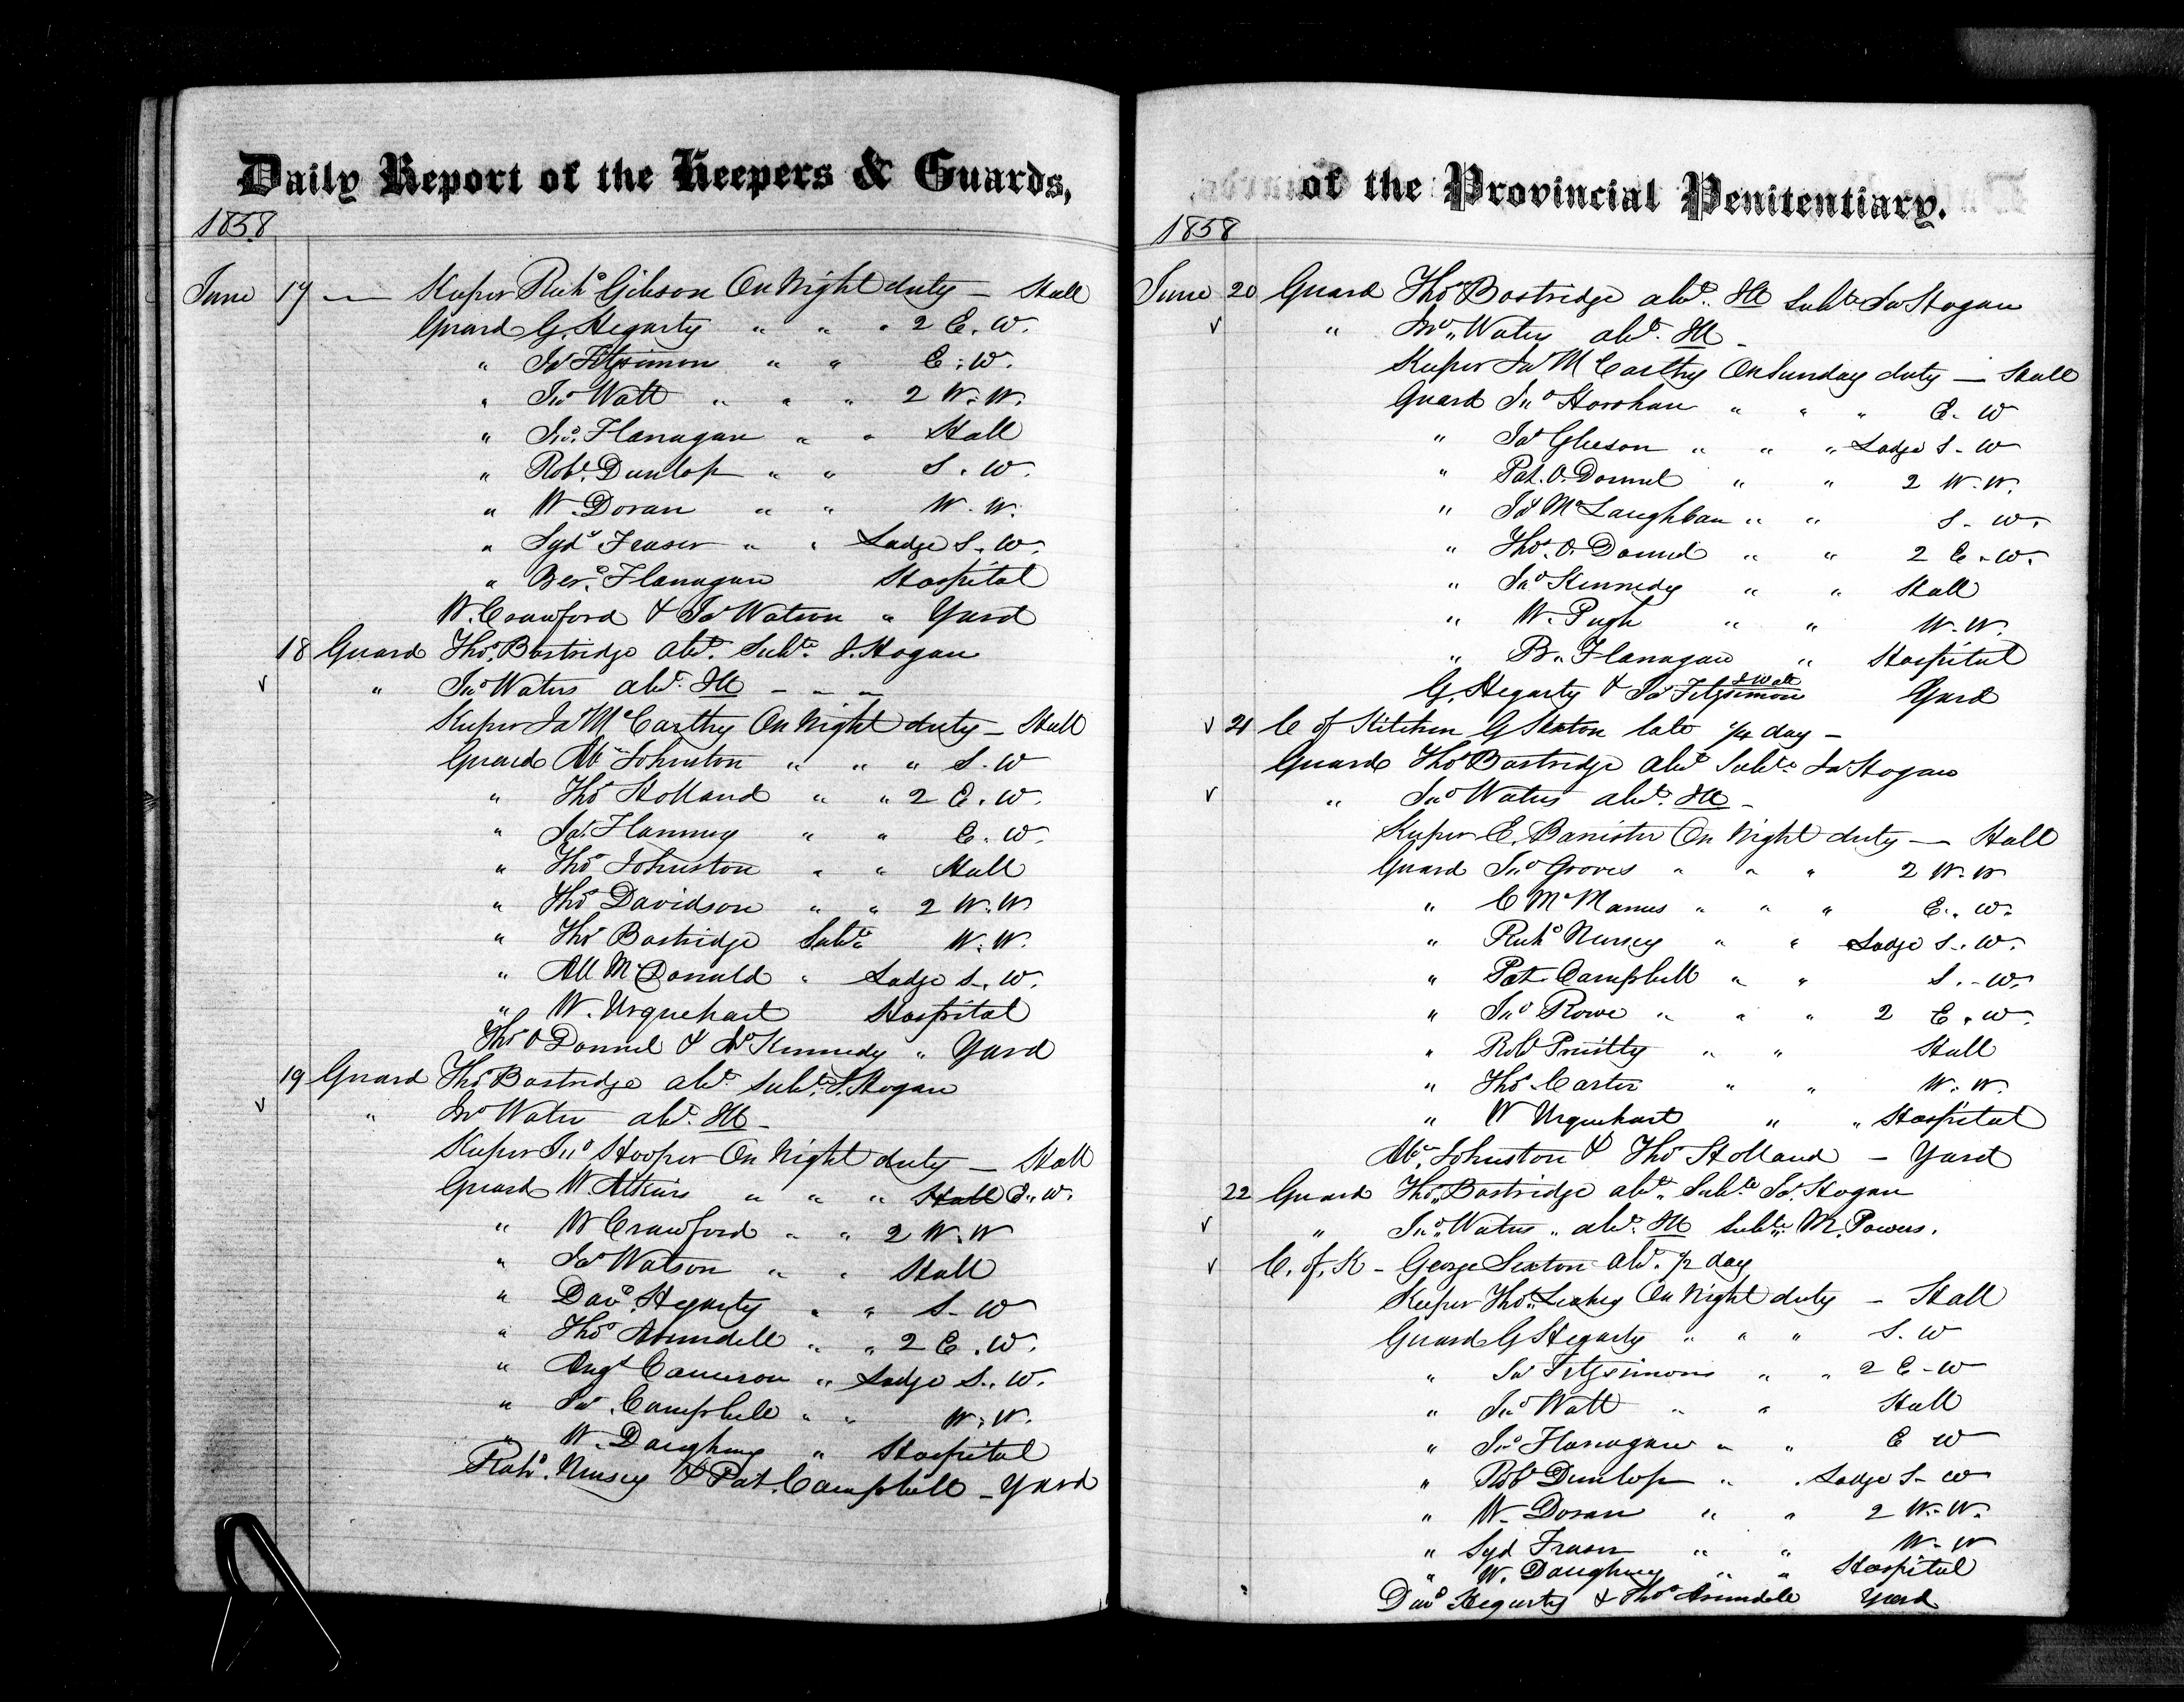 Daily Report of the Keepers & Guards,
1858
June 17 — Keeper Richd Gibson On Night duty — Hall
Guard G. Hegarty " " " 2 E. W.
" Jas Fitzsimon " " E. W.
" Jno Watt " " " 2 W. W.
" Jno. Flanagan " " Hall
" Robt. Dunlop " " S. W.
" W. Doran " " W. W.
" Sydy Fraser " " Lodge S. W.
" Berd. Flanagan Hospital
W. Crawford & Jas Watson " Yard
18 Guard Thos. Bostridge abt. Subte. J. Hogan
" Jno Waters abt. Ill — — —
Keeper Jas McCarthy On Night duty — Hall
Guard Ab Johnston " " " S. W
" Thos Holland " " 2 E. W.
" Jas. Flanning " " E. W.
" Thos Johnston " " Hall
" Thos Davidson " " 2 W. W
" Thos Bostridge Subte W. W.
" All McDonald " Lodge S. W.
" W. Urquehart Hospital
Thos O Donnel & Jno Kennedy " Yard
19 Guard Thos Bostridge abt. Subte. J. Hogan
" Jno Water abt. Ill —
Keeper Jno Hooper On Night duty — Hall
Guard W Atkins " " " Hall E. W.
" W Crawford " " 2 W. W
" Jas Watson " " Hall
" Davd. Hegarty " " S. W
" Thos Arundell " " 2 E. W.
" Angs Cameron " Lodge S. W.
" Jas Campbell " " W. W.
" W. Daughney " Hospital
Richd. Nursey & Pat. Campbell — Yard
of the Provincial Penitentiary.
1858
June 20 Guard Thos Bostridge abt. Ill Subte Jas Hogan
" Jno. Waters abt. Ill —
Keeper Jas McCarthy On Sunday duty — Hall
Guard Jno Horshan " " " E. W
" Jas Gleeson " " " Lodge S. W
" Pat. O. Donnel " " 2 W. W.
" Jas McLaughlan " " S. W.
" Thos. O. Donnel " " 2 E. W.
" Jno Kennedy " " Hall
" W. Pugh " " W. W.
" B. Flanagan " Hospital
G. Hegarty & Jas Fitzsimon & Watt Yard
21 C of Kitchen G Sexton late 1/4 day —
Guard Thos Bostridge abt Subte Jas Hogan
" Jno Waters abt. Ill —
Keeper E. Banister On Night duty — Hall
Guard Jno Groves " " " 2 W. W
" C McManus " " " E. W.
" Richd Nursey " " Lodge S. W.
" Pat. Campbell " " S. W.
" Jno Rowe " " " 2 E. W.
" Robt Priestly " " Hall
" Thos Carter " " W. W.
" W Urquehart " " Hospital
Ab. Johnston & Thos Holland — Yard
22 Guard Thos. Bostridge abt. Subte Jas. Hogan
" Jno. Waters " abt. Ill Subte. M. Powers.
C. of. K — George Sexton abt. 1/2 day
Keeper Thos. Leahey On Night duty — Hall
Guard G Hegarty " " " S. W
" Jas Fitzsimons " " 2 E. W
" Jno Watt " " Hall
" Jno Flanagan " " E W
" Robt Dunlop " " Lodge S. W
" W. Doran " " 2 W. W.
" Syd Fraser " " W. W
" W. Daughney " " Hospital
Davd Hegarty & Thos Arundell Yard